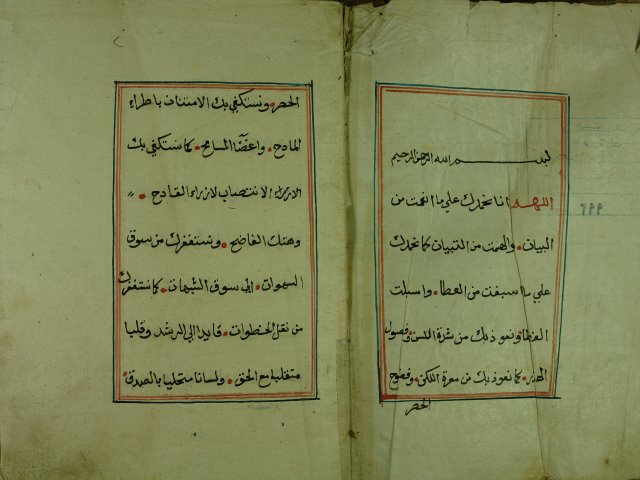 بسم الله الرحمن الرحيم
اللهم انا نحمدك علي ما علمت من
البيان والهمت من التبيان كما نحمدك
علي ما اسبغت من العطا واسبلت
الغطا ونعوذ بك من شرة اللسن وفضول
الهذر كما نعوذ بك من معرة اللكن وفضوح
الحصر
الحصر ونستكفي بك الافتتان باطراء
المادح واغضا المسامح كما نستكفي بك
الانتصاب لازراء القادح
وهتك الفاضح ونستغفرك من سوق
الشهوات الي سوق الشبهات كما نستغفرك
من نقل الخطوات قايدا الي الرشد وقلبا
متقلبا مع الحق ولسانا متحليا بالصدق
٦٩٩